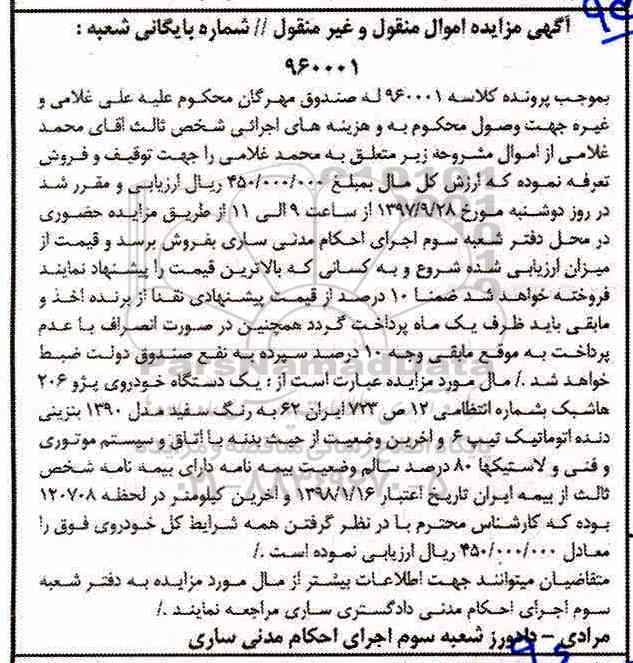 آگهی مزایده اموال منقول و غیر منقول // شماره بایگانی شعبه :
۹۶۰۰۰۱
بموجب پرونده کلاسه ۹۶۰۰۰۱ له صندوق مهرگان محکوم علیه علی غلامی و
غیره جهت وصول محکوم به و هزینه های اجرائی شخص ثالث آقای محمد
غلامی از اموال مشروحه زیر متعلق به محمد غلامی را جهت توقیف و فروش
تعرفه نموده که ارزش کل مال بمبلغ ۴۵۰/۰۰۰/۰۰۰ ریال ارزیابی و مقرر شد
در روز دوشنبه مورخ ۱۳۹۷/۹/۲۸ از ساعت ۹ الی ۱۱ از طریق مزایده حضوری
در محل دفتر شعبه سوم اجرای احکام مدنی ساری بفروش برسد و قیمت از
میزان ارزیابی شده شروع و به کسانی که بالاترین قیمت را پیشنهاد نمایند
فروخته خواهد شد ضمنا ۱۰ درصد از قیمت پیشنهادی نقدا از برنده اخذ و
مابقی باید ظرف یک ماه پرداخت گردد همچنین در صورت انصراف یا عدم
پرداخت به موقع مابقی وجه ۱۰ درصد سپرده به نفع صندوق دولت ضبط
خواهد شد ./ مال مورد مزایده عبارت است از : یک دستگاه خودروی پژو ۲۰۶
هاشبک بشماره انتظامی ۱۲ ص ۷۲۳ ایران ۶۲ به رنگ سفید مدل ۱۳۹۰ بنزینی
دنده اتوماتیک تیپ ۶ و آخرین وضعیت از حیث بدنه یا اتاق و سیستم موتوری
و فنی و لاستیکها ۸۰ درصد سالم وضعیت بیمه نامه دارای بیمه نامه شخص
ثالث از بیمه ایران تاریخ اعتبار ۱۳۹۸/۱/۱۶ و آخرین کیلومتر در لحظه ۱۲۰۷۰۸
بوده که کارشناس محترم با در نظر گرفتن همه شرایط کل خودروی فوق را
معادل ۴۵۰/۰۰۰/۰۰۰ ریال ارزیابی نموده است ./
متقاضیان میتوانند جهت اطلاعات بیشتر از مال مورد مزایده به دفتر شعبه
سوم اجرای احکام مدنی دادگستری ساری مراجعه نمایند ./
مرادی – دادورز شعبه سوم اجرای احکام مدنی ساری
ParsNamadData
پایگاه اطلاع رسانی مناقصه و مزایده
۰۲۱-۸۸۳۴۹۶۷۰-۵